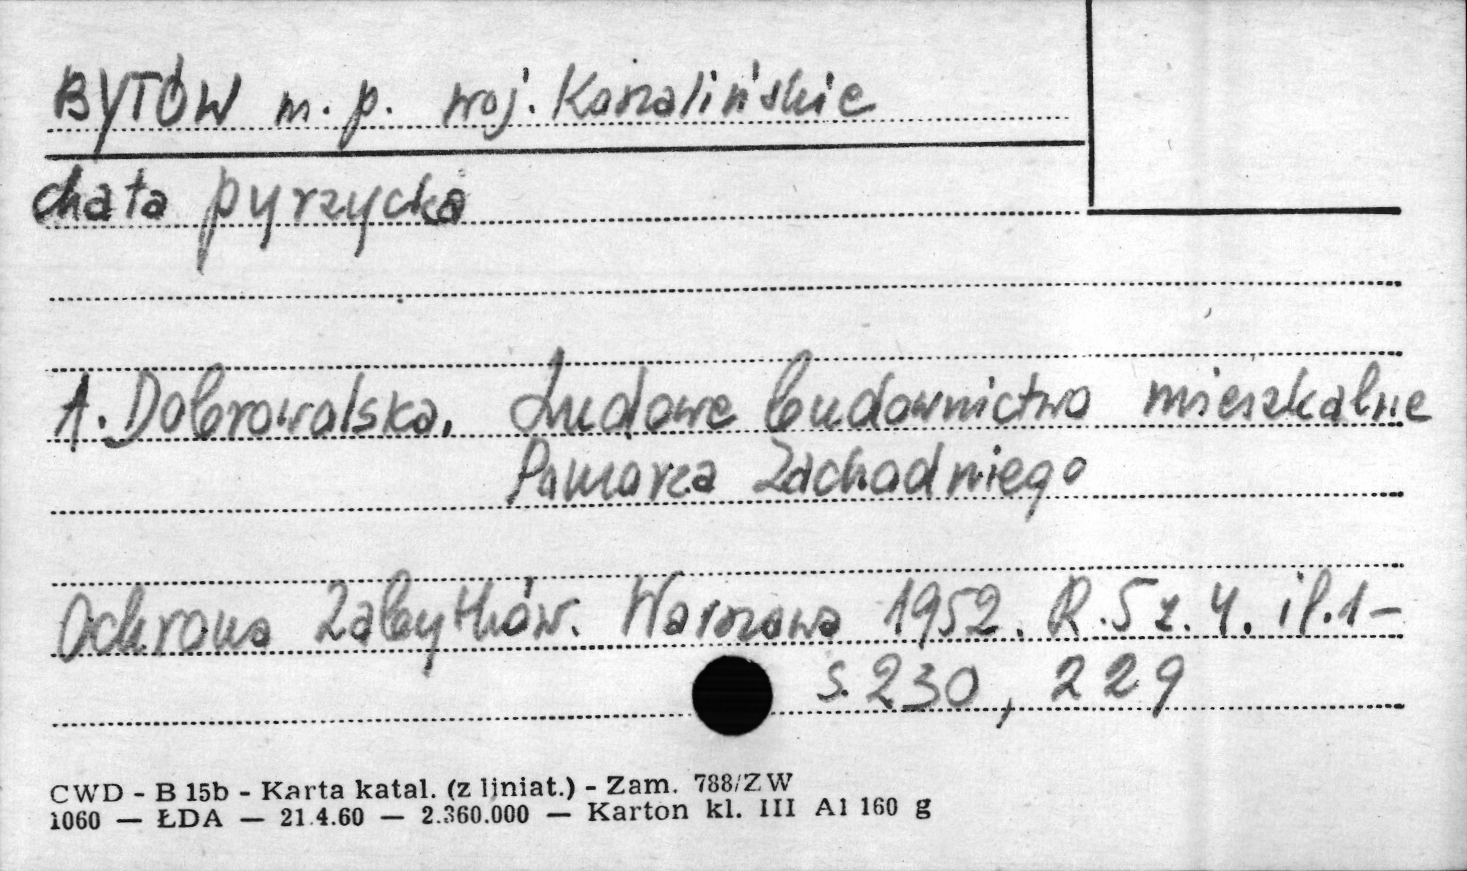 BYTÓW m. p. woj. Koszalińskie
chata pyrzycka
A. Dobrowolska. Ludowe budownictwo mieszkalne
Pomorza Zachodniego
Ochrona Zabytków. Warszawa 1952. R. 5 z. 4. il. 1 –
s. 230, 229
CWD - B 15b - Karta katal. (z liniat.) - Zam. 788/ZW
1060 — ŁDA — 21.4.60 — 2.360.000 — Karton kl. III A1 160 g